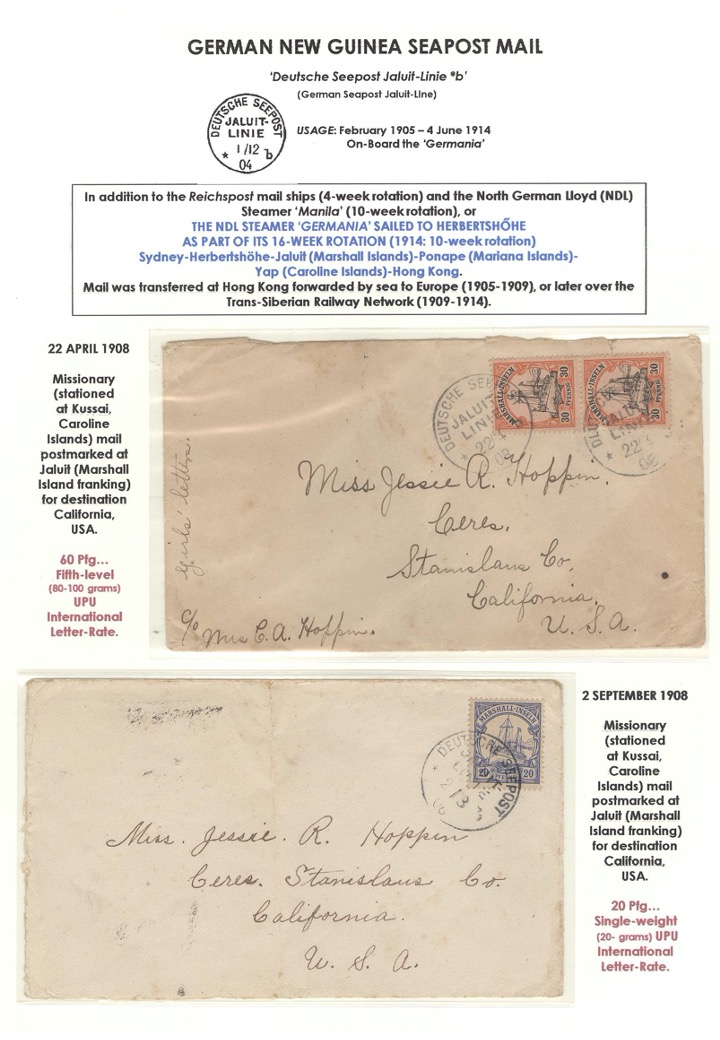 GERMAN NEW GUINEA SEAPOST MAIL
'Deutsche Seepost Jaluit-Linie *b'
(German Seapost Jaluit-Line)
DEUTSCHE SEEPOST
JALUIT-
LINIE
* 1/12 b
04
USAGE: February 1905 – 4 June 1914
On-Board the 'Germania'
In addition to the Reichspost mail ships (4-week rotation) and the North German Lloyd (NDL)
Steamer 'Manila' (10-week rotation), or
THE NDL STEAMER 'GERMANIA' SAILED TO HERBERTSHŐHE
AS PART OF ITS 16-WEEK ROTATION (1914: 10-week rotation)
Sydney-Herbertshöhe-Jaluit (Marshall Islands)-Ponape (Mariana Islands)-
Yap (Caroline Islands)-Hong Kong.
Mail was transferred at Hong Kong forwarded by sea to Europe (1905-1909), or later over the
Trans-Siberian Railway Network (1909-1914).
22 APRIL 1908
Missionary
(stationed
at Kussai,
Caroline
Islands) mail
postmarked at
Jaluit (Marshall
Island franking)
for destination
California,
USA.
60 Pfg...
Fifth-level
(80-100 grams)
UPU
International
Letter-Rate.
MARSHALL-INSELN
30 PFENNIG 30
MARSHALL-INSELN
30 PFENNIG 30
DEUTSCHE SEE
JALUIT
LINIE
* 22
08
DEU
JALUI
LIN
* 22
08
Girls' letters.
Miss Jessie R. Hoppin.
Ceres,
Stanislaus Co,
California,
U. S. A.
c/o Mrs C. A. Hoppin.
MARSHALL-INSELN
20 20
DEUTSCHE SEEPOST
08
Miss. Jessie. R. Hoppin
Ceres. Stanislaus Co.
California.
U. S. A.
2 SEPTEMBER 1908
Missionary
(stationed
at Kussai,
Caroline
Islands) mail
postmarked at
Jaluit (Marshall
Island franking)
for destination
California,
USA.
20 Pfg...
Single-weight
(20- grams) UPU
International
Letter-Rate.